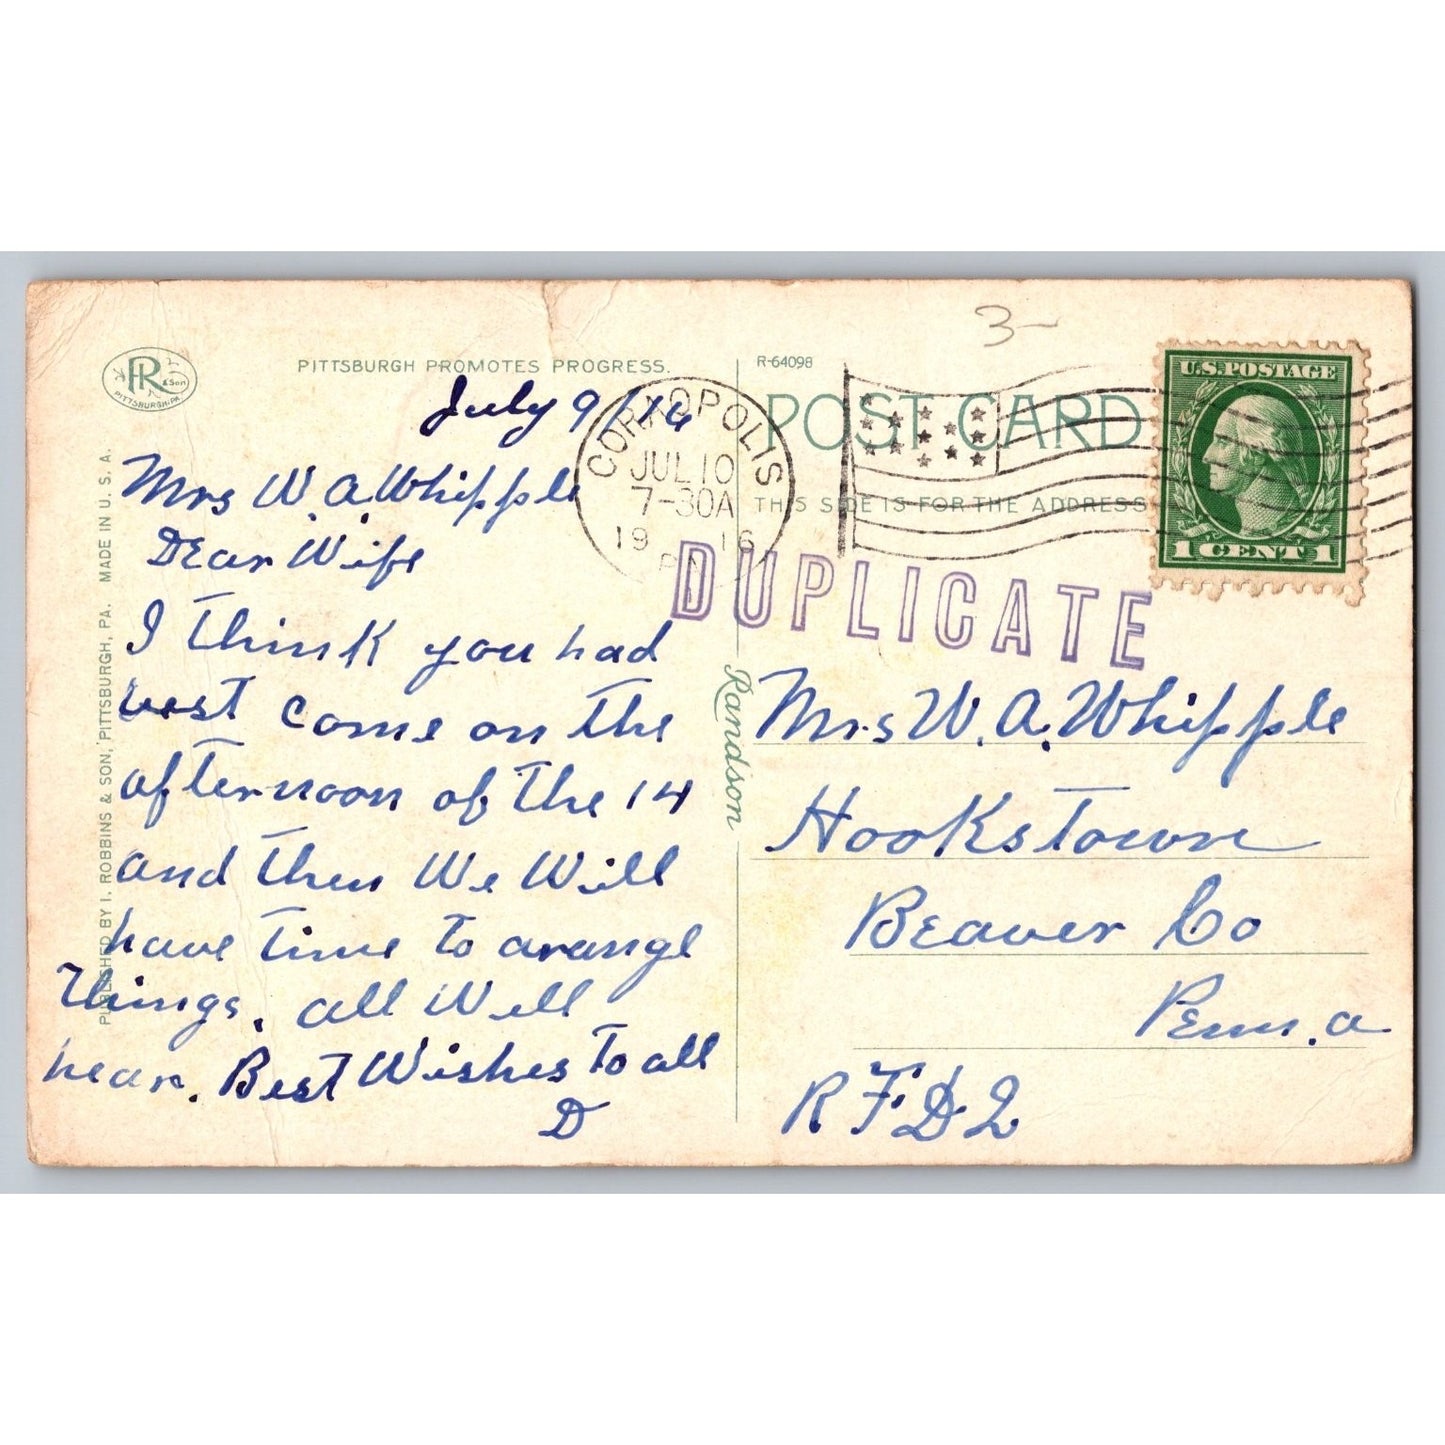 PITTSBURGH PROMOTES PROGRESS.
R & Son
PITTSBURGH, PA.
July 9/16
Mrs W. A. Whipple
Dear Wife
I think you had
best come on the
afternoon of the 14
and then We Will
have time to arange
things. all Well
hear. Best Wishes to all
D
PUBLISHED BY I. ROBBINS & SON, PITTSBURGH, PA. MADE IN U. S. A.
Randson
R-64098
POST CARD
THIS SIDE IS FOR THE ADDRESS
CORAOPOLIS
JUL 10
7-30A
1916
PA.
3-
U.S. POSTAGE
1 CENT 1
DUPLICATE
Mrs W. A. Whipple
Hookstown
Beaver Co
Penn.a
R F. D. 2